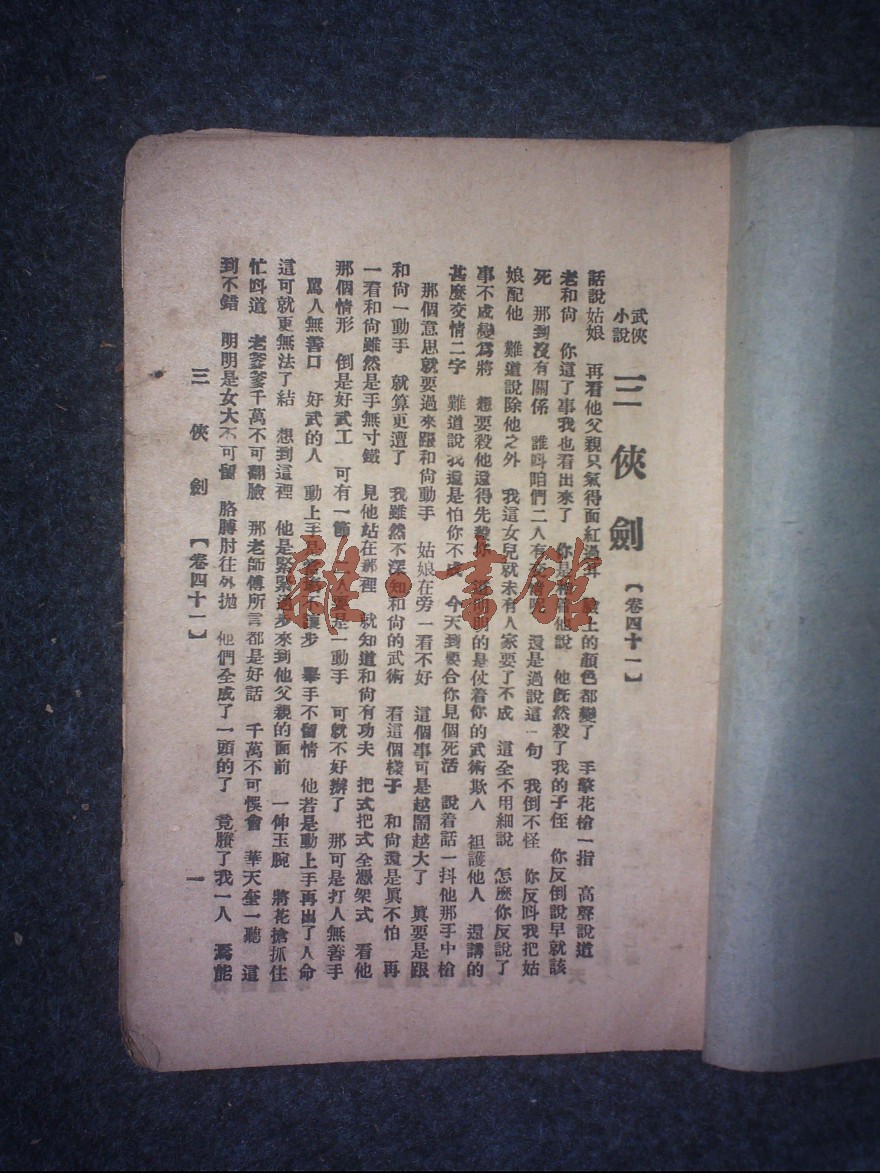 武俠小說 三俠劍 【卷四十一】
話說姑娘 再看他父親只氣得面紅過耳 臉上的顏色都變了 手擎花槍一指 高聲說道
老和尙 你這了事我也看出來了 你是 他說 他旣然殺了我的子侄 你反倒說早就該
死 那到沒有關係 誰呌咱們二人有交情呢 還是過說這一句 我倒不怪 你反呌我把姑
娘配他 難道說除他之外 我這女兒就未有人家要了不成 這全不用細說 怎麼你反說了
事不成變爲將 想要殺他還得先殺你 明明的是仗着你的武術欺人 袒護他人 還講的
甚麼交情二字 難道說我還是怕你不成 今天到要合你見個死活 說着話一抖他那手中槍
那個意思就要過來跟和尙動手 姑娘在旁一看不好 這個事可是越鬧越大了 眞要是跟
和尙一動手 就算更遭了 我雖然不深知和尙的武術 看這個樣子 和尙還是眞不怕 再
一看和尙雖然是手無寸鐵 見他站在那裡 就知道和尙有功夫 把式把式全憑架式 看他
那個情形 倒是好武工 可有一節 二人要是一動手 可就不好辦了 那可是打人無善手
罵人無善口 好武的人 動上手是 不讓步 舉手不留情 他若是動上手再出了人命
這可就更無法了結 想到這裡 他是緊緊過步來到他父親的面前 一伸玉腕 將花搶抓住
忙呌道 老爹爹千萬不可翻臉 那老師傅所言都是好話 千萬不可悞會 華天奎一聽 這
到不錯 明明是女大不可留 胳膊肘往外拋 他們全成了一頭的了 竟賸了我一人 焉能
三俠劍 【卷四十一】 一
雜·書館